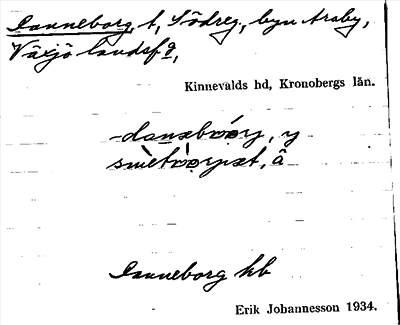 Danneborg, t, Södreg, byn Araby,
Växjö landsfg,
Kinnevalds hd, Kronobergs län.
danæbrory, y
Danneborg kb
Erik Johannesson 1934.